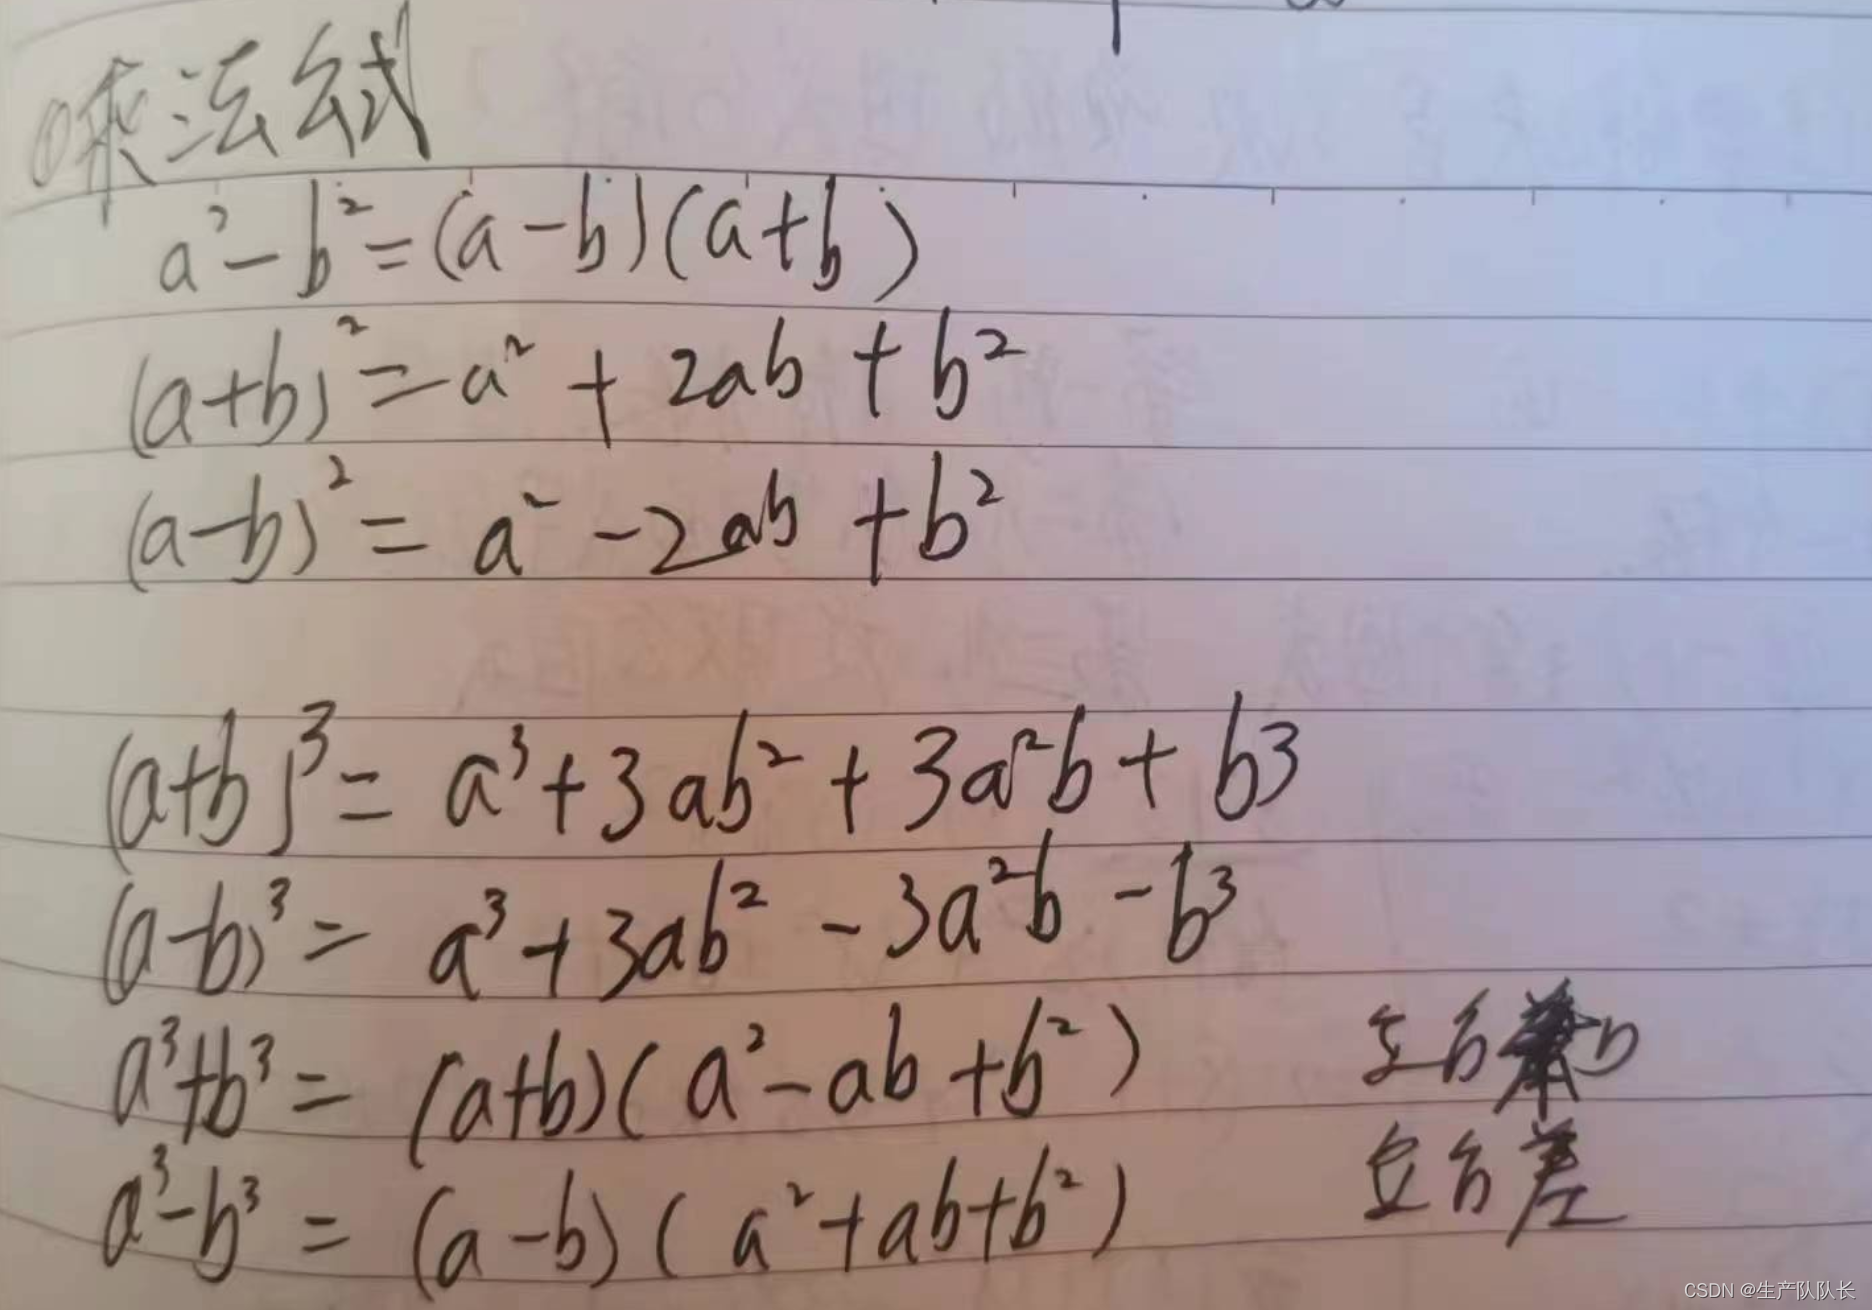 ①乘法公式
a²-b²=(a-b)(a+b)
(a+b)²=a²+2ab+b²
(a-b)²=a²-2ab+b²
(a+b)³=a³+3ab²+3a²b+b3
(a-b)³=a³+3ab²-3a²b-b³
a³+b³=(a+b)(a²-ab+b²) 立方和
a³-b³=(a-b)(a²+ab+b²) 立方差
CSDN @生产队队长